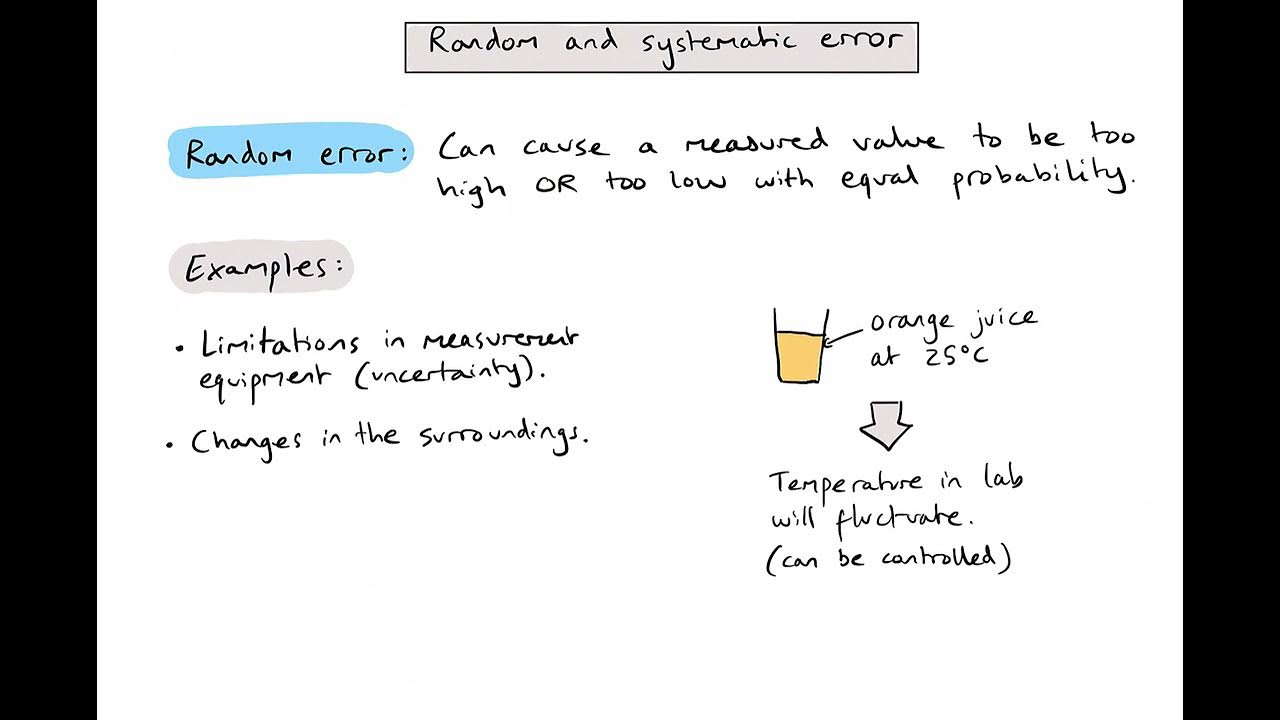 Random and systematic error
Random error: Can cause a measured value to be too
high OR too low with equal probability.
Examples:
• Limitations in measurement
equipment (uncertainty).
• Changes in the surroundings.
orange juice
at 25°C
Temperature in lab
will fluctuate.
(can be controlled)